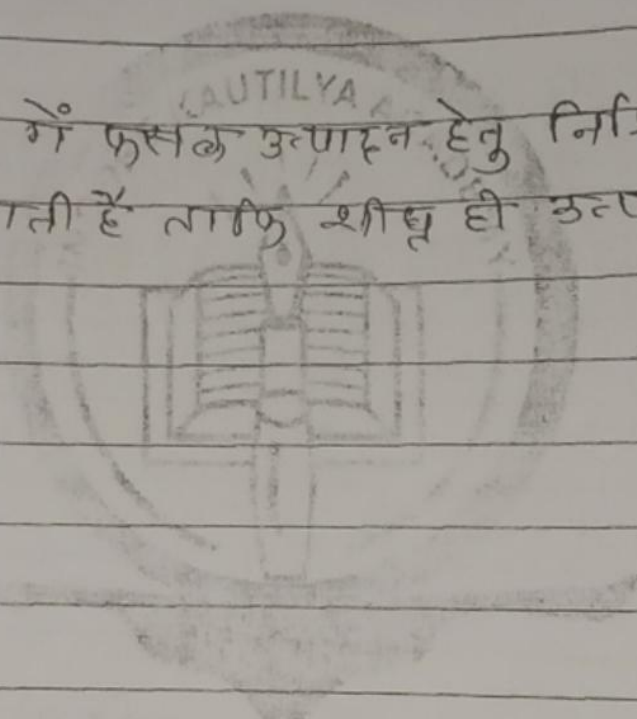 KAUTILYA A
में फसल उत्पादन हेतु नि
ाती है ताकि शीघ्र ही उत्